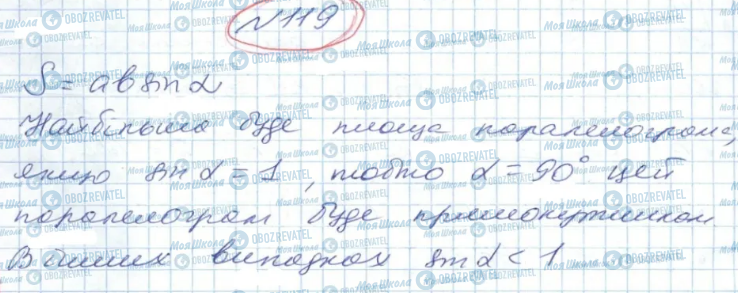 №119
S = ab sin α
Найбільша буде площа паралелограма,
якщо sin α = 1, тобто α = 90° цей
паралелограм буде прямокутником
В інших випадках sin α < 1